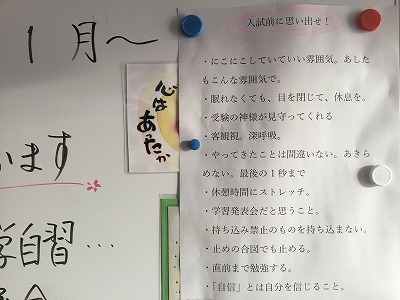 1月〜
います
学自習…
心は
あったか
入試前に思い出せ！
・にこにこしていていい雰囲気。あした
もこんな雰囲気で。
・眠れなくても、目を閉じて、休息を。
・受験の神様が見守ってくれる
・客観視。深呼吸。
・やってきたことは間違いない。あきら
めない。最後の１秒まで
・休憩時間にストレッチ。
・学習発表会だと思うこと。
・持ち込み禁止のものを持ち込まない。
・止めの合図でも止める。
・直前まで勉強する。
・「自信」とは自分を信じること。